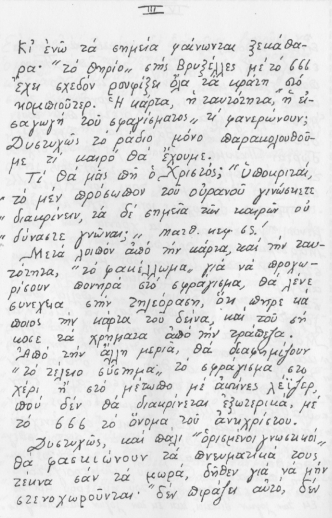 III
Κι ἐνῶ τά σημεῖα φαίνωνται ξεκάθα-
ρα· "τό θηρίο„ στίς Βρυξέλλες μέ τό 666
ἔχει σχεδόν ρουφίξει ὅλα τά κράτη στό
κομπιοῦτερ. Ἡ κάρτα, ἡ ταυτότητα, ἡ εἰ-
σαγωγή τοῦ σφαγίσματος„ τί φανερώνουν;
Δυστυχῶς τό ράδιο μόνο παρακολουθοῦ-
με τί καιρό θά ἔχουμε.
Τί θά μᾶς πῆ ὁ Χριστός; "Ὑποκριταί,
"τό μέν πρόσωπον τοῦ οὐρανοῦ γινώσκετε
"διακρίνειν, τά δέ σημεῖα τῶν καιρῶν οὐ
δύνασθε γνῶναι;„ Ματθ. κεφ 55!
Μετά λοιπόν ἀπό τήν κάρτα, καί τήν ταυ-
τότητα, "τό φακέλλωμα„ γιά νά προχω-
ρίσουν πονηρά στό σφράγισμα, θά λένε
συνεχῶς στήν τηλεόραση, ὅτι πῆρε κά
ποιος τήν κάρτα τοῦ δεῖνα, καί τοῦ σή
κωσε τά χρήματα ἀπό τήν τράπεζα.
Ἀπό τήν ἄλλη μεριά, θά διαφημίζουν
"τό τέλειο σύστημα„ τό σφράγισμα στό
χέρι ἤ στό μέτωπο μέ ἀκτίνες λέϊζερ,
πού δέν θά διακρίνεται ἐξωτερικά, μέ
τό 666 τό ὄνομα τοῦ ἀντιχρίστου.
Δυστυχῶς, καί πάλι "ὁρισμένοι γνωστικοί„
θά φασκιώνουν τά πνευματικά τους
τέκνα σάν τά μωρά, δῆθεν γιά νά μήν
στενοχωροῦνται· "δέν πιράζει αὐτό, δέν